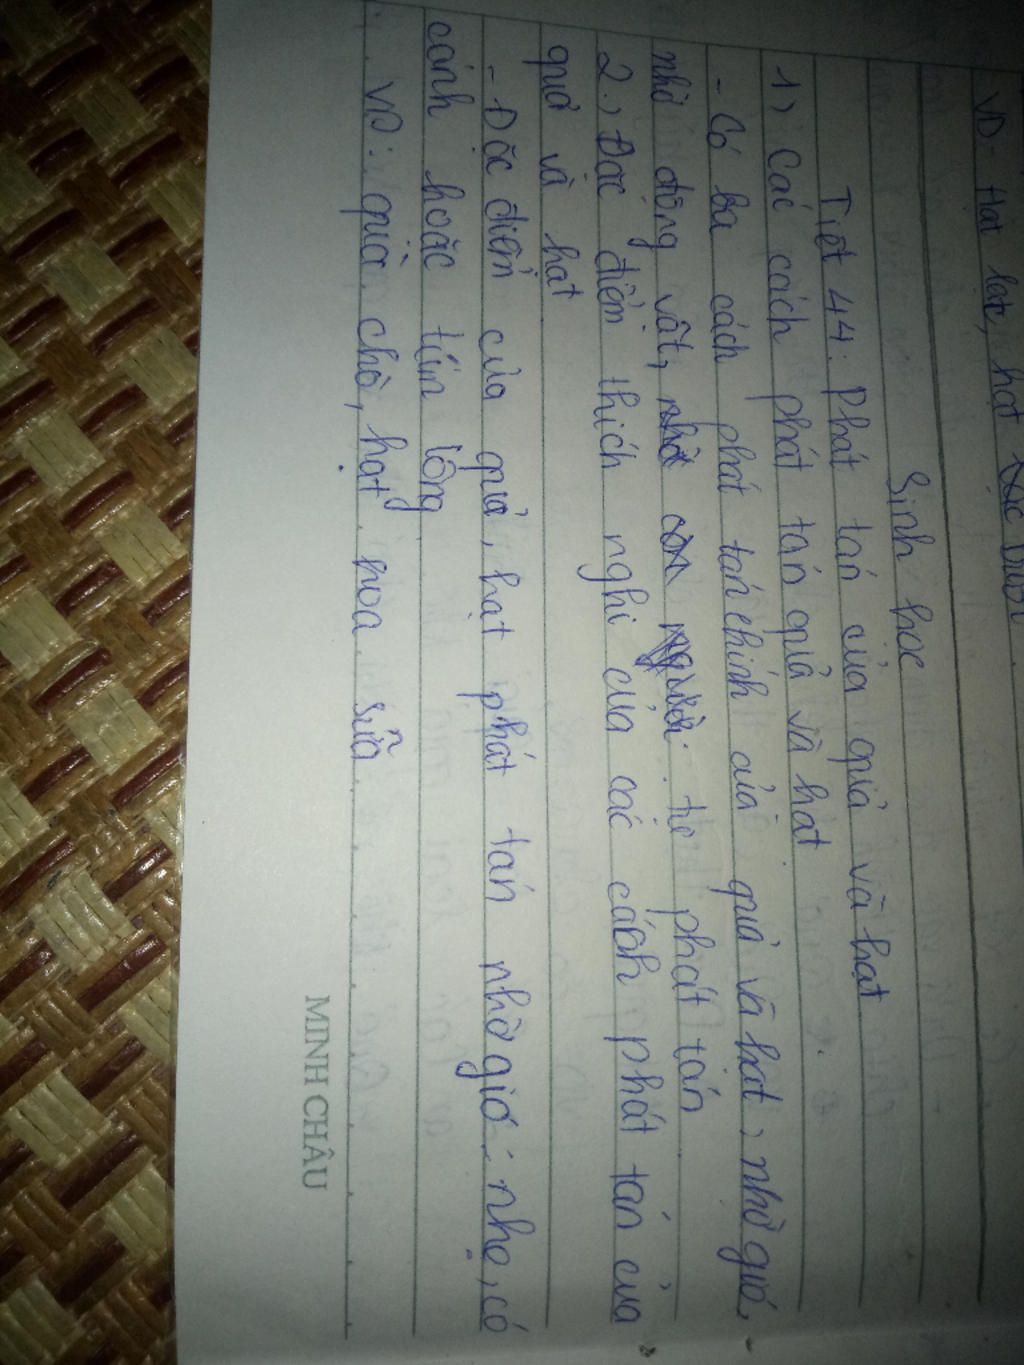 VD- Hạt lạc, hạt
Sinh học
Tiết 44: Phát tán của quả và hạt
1) Các cách phát tán quả và hạt
- Có ba cách phát tán chính của quả và hạt, nhờ gió,
nhờ động vật, nhờ con người. tự phát tán
2.) Đặc điểm thích nghi của các cách phát tán của
quả và hạt
- Đặc điểm của quả, hạt phát tán nhờ gió: nhẹ, có
cánh hoặc túm lông
VD: quả chò, hạt hoa sữa
MINH CHÂU